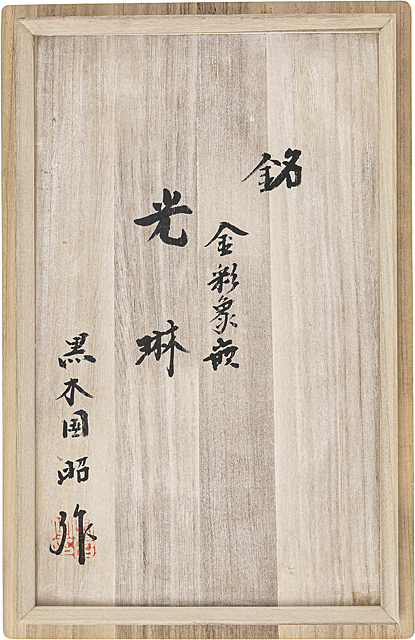 銘
金彩象嵌
光琳
黒木国昭作